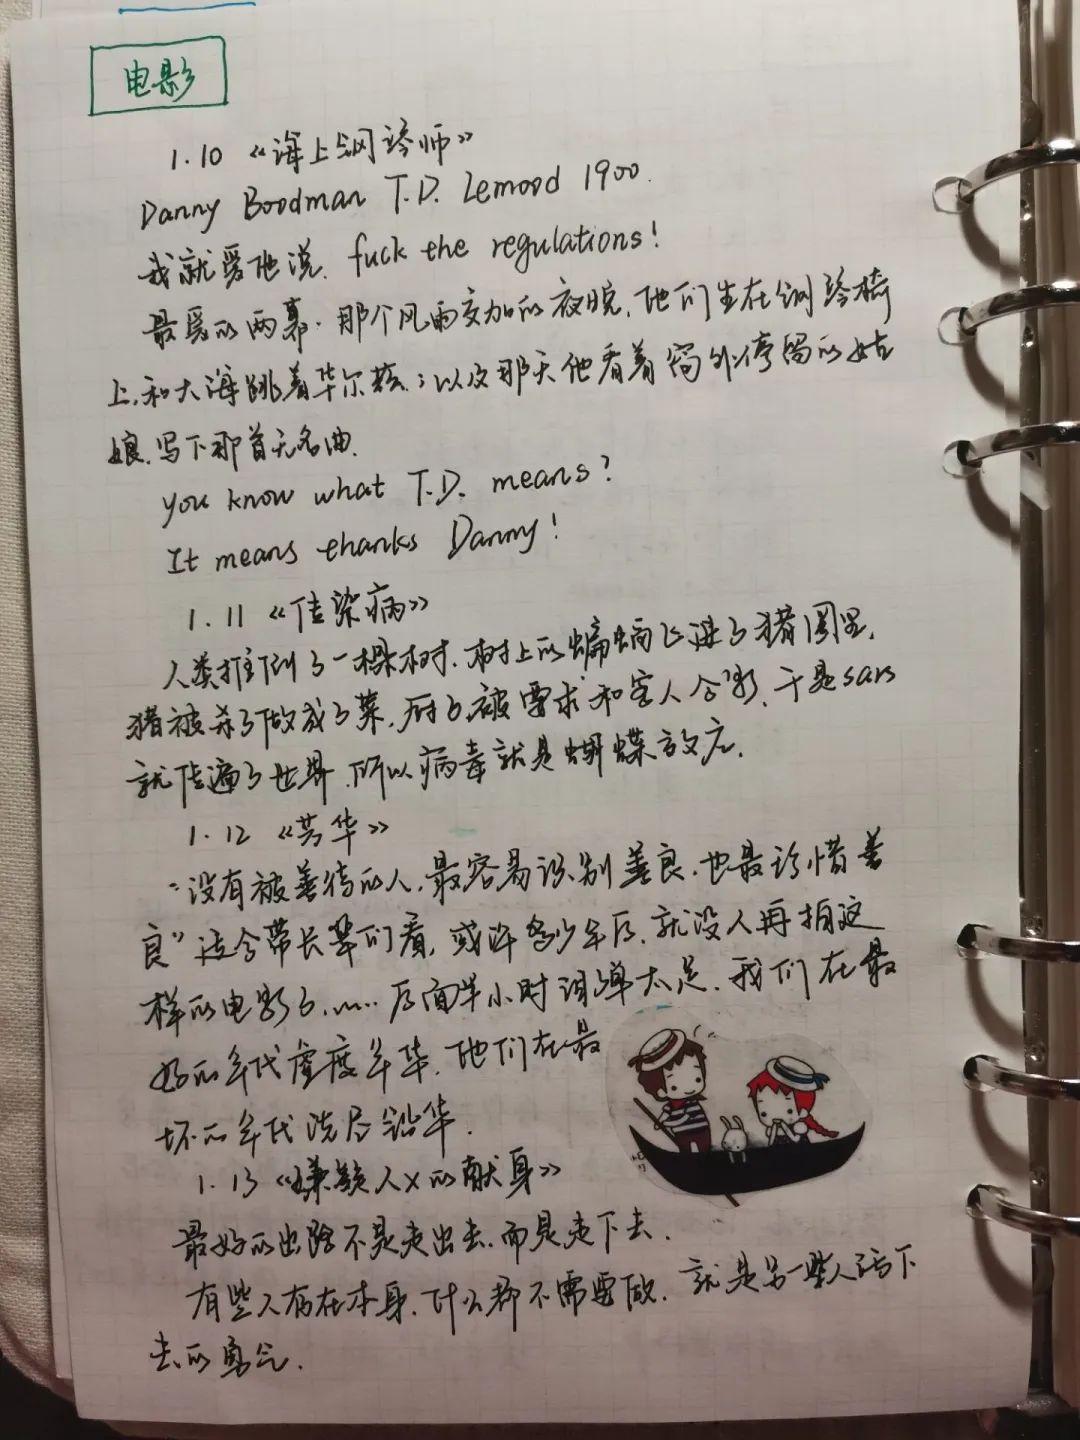 电影
1.10 《海上钢琴师》
Danny Boodman T.D. Lemood 1900.
我就爱他说. fuck the regulations!
最爱的两幕. 那个风雨交加的夜晚, 他们坐在钢琴椅
上, 和大海跳着华尔兹; 以及那天他看着窗外停留的姑
娘. 写下那首无名曲.
you know what T.D. means?
It means thanks Danny!
1.11 《传染病》
人类推倒了一棵树. 树上的蝙蝠飞进了猪圈里.
猪被杀了做成了菜, 厨子被要求和客人合影, 于是sars
就传遍了世界. 所以病毒就是蝴蝶效应.
1.12 《芳华》
“没有被善待的人, 最容易识别善良. 也最珍惜善
良” 适合带长辈们看, 或许多少年后, 就没人再拍这
样的电影了...... 后面半小时泪弹太足. 我们在最
好的年代虚度年华, 他们在最
坏的年代洗尽铅华.
1.13 《嫌疑人X的献身》
最好的出路不是走出去. 而是走下去.
有些人存在本身. 什么都不需要做. 就是另一些人活下
去的勇气.